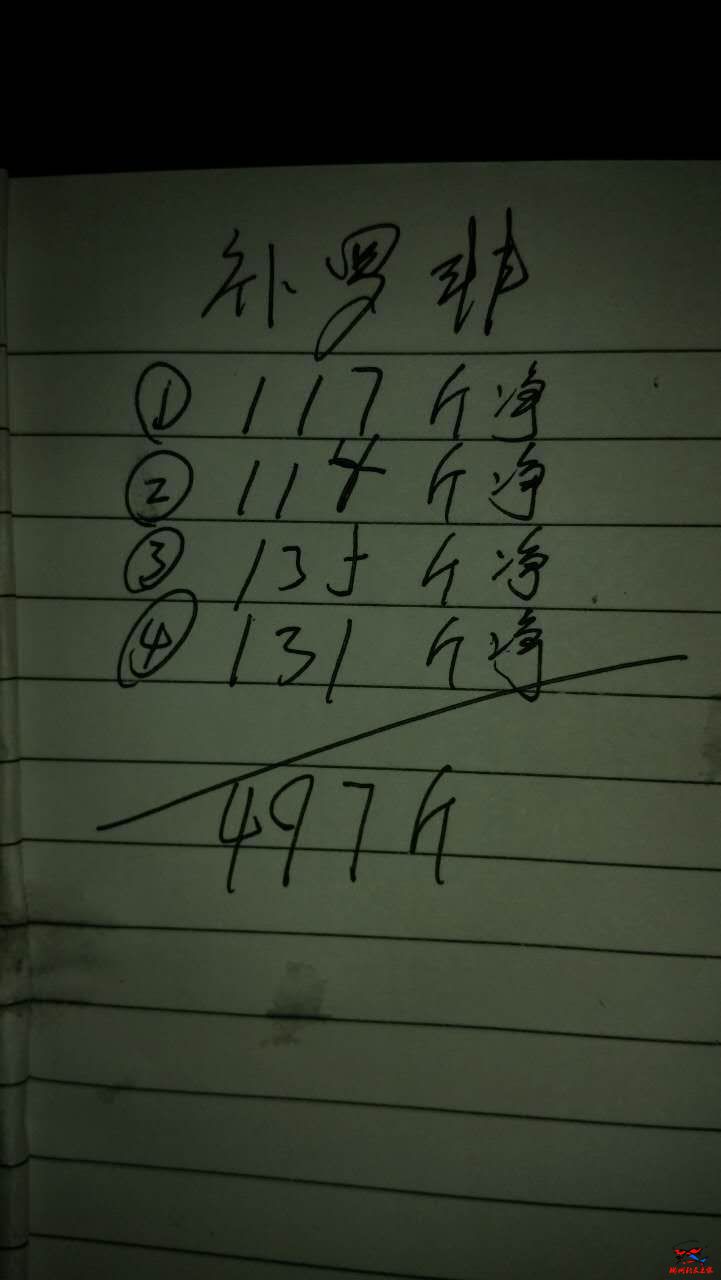 补罗非
① 117斤净
② 114斤净
③ 135斤净
④ 131斤净
497斤